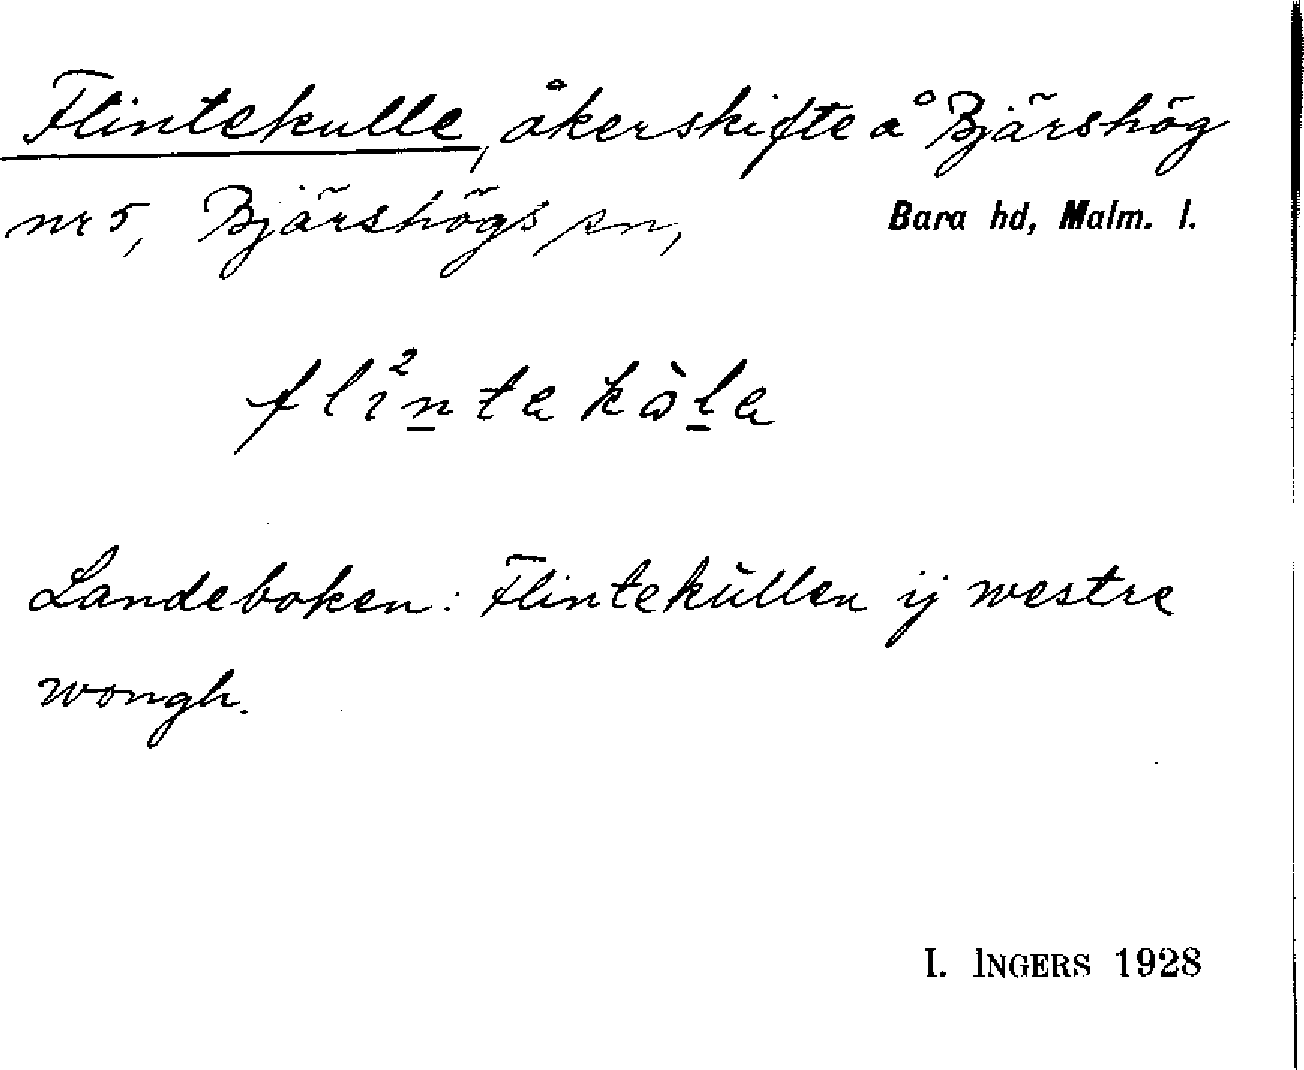 Flintekulle, åkerskifte å Bjärshög
nr 5, Bjärshögs sn, Bara hd, Malm. l.
fli²ntekàla
Landeboken: Flinteküllen ij westre
wongh.
I. INGERS 1928